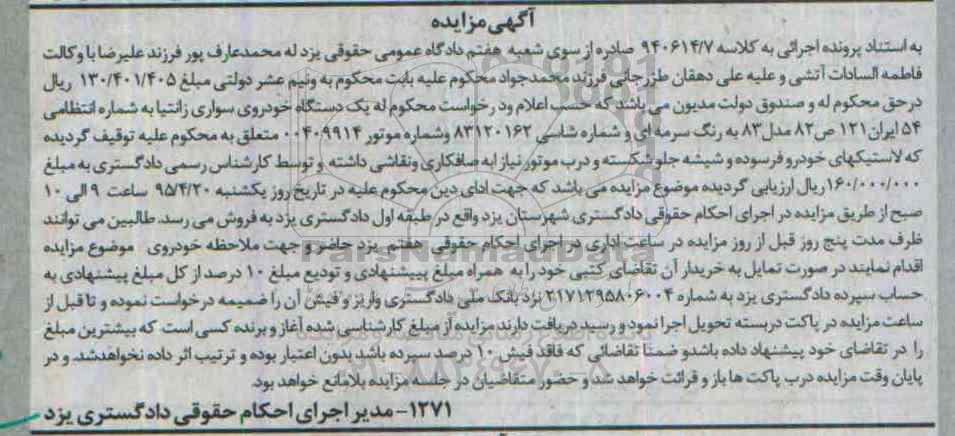 آگهی مزایده
به استناد پرونده اجرائی به کلاسه ۹۴۰۶۱۴/۷ صادره از سوی شعبه هفتم دادگاه عمومی حقوقی یزد له محمدعارف پور فرزند علیرضا با وکالت
فاطمه السادات آتشی و علیه علی دهقان طزرجانی فرزند محمدجواد محکوم علیه بابت محکوم به ونیم عشر دولتی مبلغ ۱۳۰/۴۰۱/۴۰۵ ریال
درحق محکوم له و صندوق دولت مدیون می باشد که حسب اعلام ودرخواست محکوم له یک دستگاه خودروی سواری زانتیا به شماره انتظامی
۵۴ ایران۱۲۱ ص۸۲ مدل۸۳ به رنگ سرمه ای و شماره شاسی ۸۳۱۲۰۱۶۲ وشماره موتور ۰۰۴۰۹۹۱۴ متعلق به محکوم علیه توقیف گردیده
که لاستیکهای خودرو فرسوده و شیشه جلو شکسته و درب موتور نیاز ابه صافکاری ونقاشی داشته و توسط کارشناس رسمی دادگستری به مبلغ
۱۶۰/۰۰۰/۰۰۰ریال ارزیابی گردیده موضوع مزایده می باشد که جهت ادای دین محکوم علیه در تاریخ روز یکشنبه ۹۵/۴/۲۰ ساعت ۹ الی ۱۰
صبح از طریق مزایده در اجرای احکام حقوقی دادگستری شهرستان یزد واقع در طبقه اول دادگستری یزد به فروش می رسد. طالبین می توانند
ظرف مدت پنج روز قبل از روز مزایده در ساعت اداری در اجرای احکام حقوقی هفتم یزد حاضر و جهت ملاحظه خودروی موضوع مزایده
اقدام نمایند در صورت تمایل به خریدار آن تقاضای کتبی خود را به همراه مبلغ پییشنهادی و تودیع مبلغ ۱۰ درصد از کل مبلغ پیشنهادی به
حساب سپرده دادگستری یزد به شماره ۲۱۷۱۲۹۵۸۰۶۰۰۴ نزد بانک ملی دادگستری واریز و فیش آن را ضمیمه درخواست نموده و تا قبل از
ساعت مزایده در پاکت دربسته تحویل اجرا نمود و رسید دریافت دارند مزایده از مبلغ کارشناسی شده آغاز و برنده کسی است که بیشترین مبلغ
را در تقاضای خود پیشنهاد داده باشدو ضمنا تقاضائی که فاقد فیش ۱۰ درصد سپرده باشد بدون اعتبار بوده و ترتیب اثر داده نخواهدشد. و در
پایان وقت مزایده درب پاکت ها باز و قرائت خواهد شد و حضور متقاضیان در جلسه مزایده بلامانع خواهد بود.
۱۲۷۱- مدیر اجرای احکام حقوقی دادگستری یزد
ParsNamadData